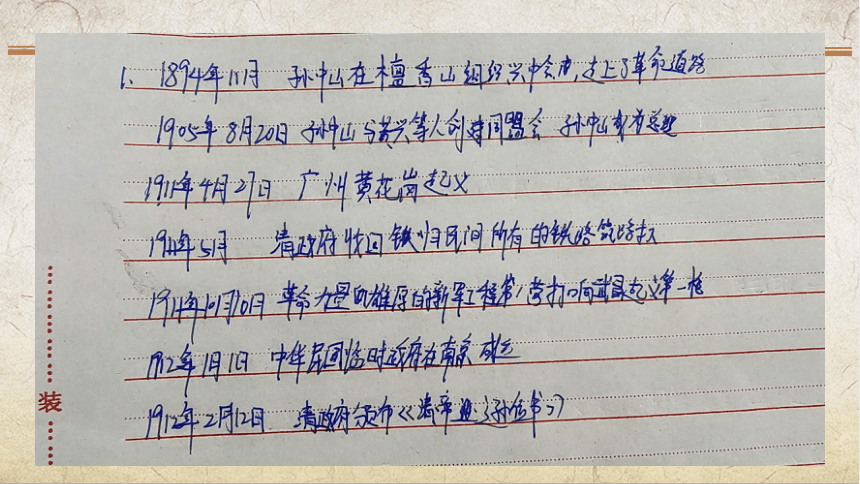 1. 1894年11月 孙中山在檀香山组织兴中会,走上了革命道路
1905年8月20日 孙中山与黄兴等人创建同盟会 孙中山为总理
1911年4月27日 广州黄花岗起义
1911年5月 清政府收回 归民间所有的铁路筑路权
1911年10月10日 革命力量 雄厚的新军工程第 营打响武昌起义第一枪
1912年1月1日 中华民国临时政府在南京成立
1912年2月12日 清政府颁布《清帝 书》
装